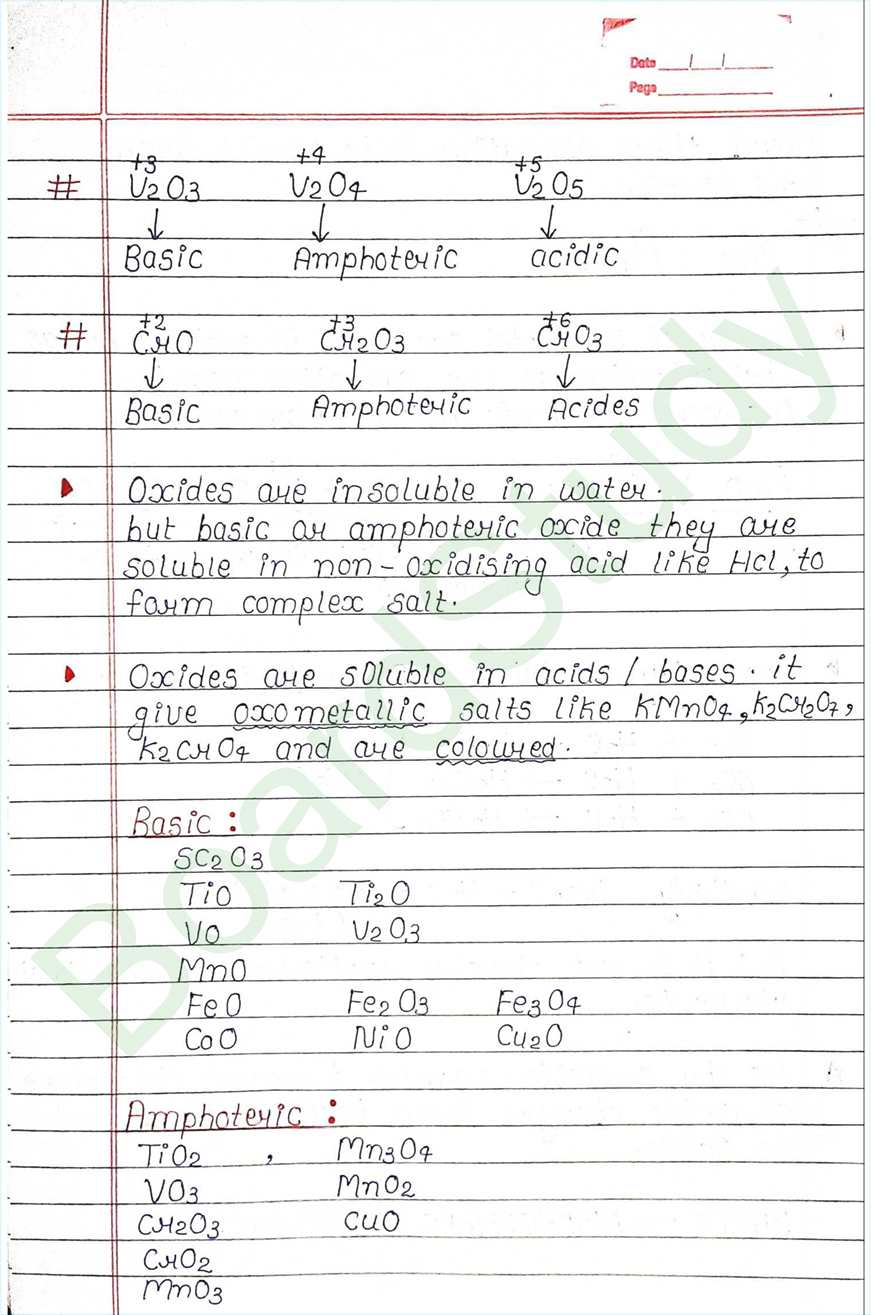 Date / /
Page
+3 +4 +5
# V2O3 V2O4 V2O5
↓ ↓ ↓
Basic Amphoteric acidic
+2 +3 +6
# CrO Cr2O3 CrO3
↓ ↓ ↓
Basic Amphoteric Acides
Oxides are insoluble in water.
but basic or amphoteric oxide they are
soluble in non-oxidising acid like Hcl, to
form complex salt.
Oxides are soluble in acids / bases. it
give oxometallic salts like KMnO4, K2Cr2O7,
K2CrO4 and are coloured.
Basic :
SC2O3
TiO Ti2O
VO V2O3
MnO
FeO Fe2O3 Fe3O4
CoO NiO Cu2O
Amphoteric :
TiO2 , Mn3O4
VO3 MnO2
Cr2O3 CuO
CrO2
MnO3
BoardStudy